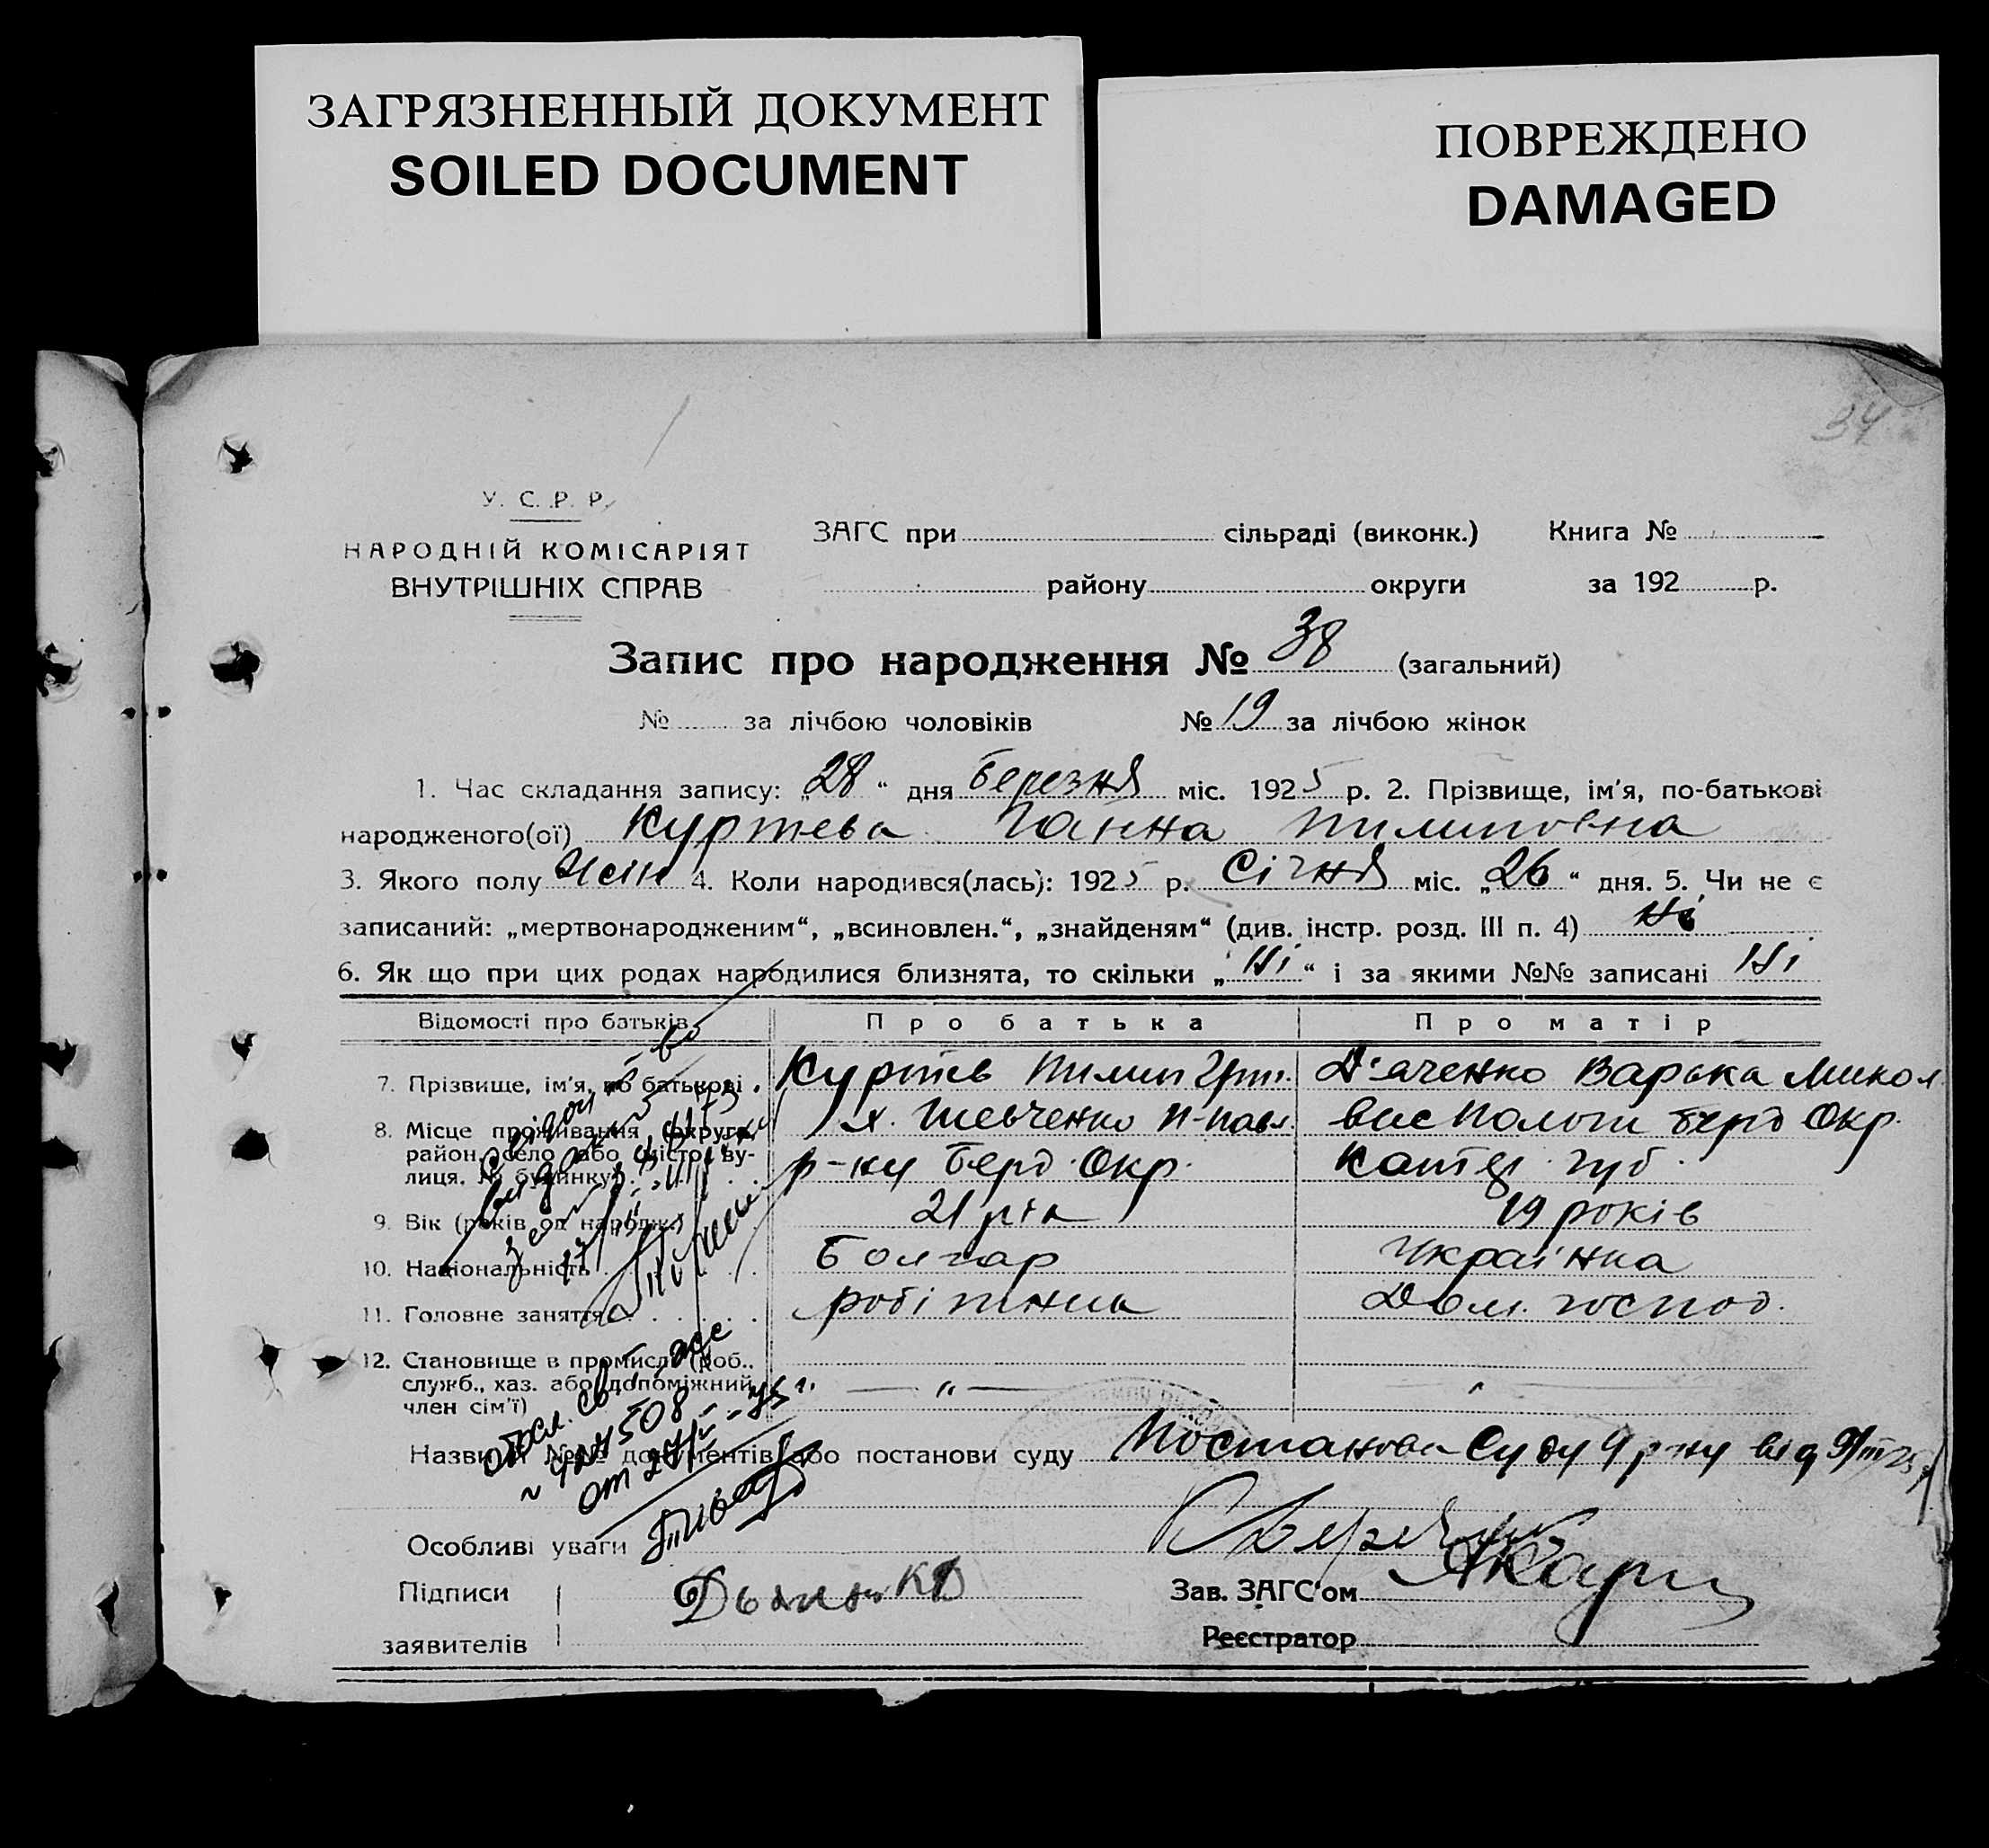 ЗАГРЯЗНЕННЫЙ ДОКУМЕНТ
SOILED DOCUMENT
ПОВРЕЖДЕНО
DAMAGED
34
У. С. Р. Р.
НАРОДНІЙ КОМІСАРІЯТ
ВНУТРІШНІХ СПРАВ
ЗАГС при сільраді (виконк.) Книга №
району округи за 192 р.
Запис про народження № 38 (загальний)
№ за лічбою чоловіків № 19 за лічбою жінок
1. Час складання запису: „28“ дня березня міс. 1925 р. 2. Прізвище, ім'я, по-батькові
народженого(ої) Куртева Ганна Пилиповна
3. Якого полу жін 4. Коли народився(лась): 1925 р. Січня міс. „26“ дня. 5. Чи не є
записаний: „мертвонародженим“, „всиновлен.“, „знайденям“ (див. інстр. розд. III п. 4) Ні
6. Як що при цих родах народилися близнята, то скільки „Ні“ і за якими №№ записані Ні
Відомості про батьків Про батька Про матір
7. Прізвище, ім'я, по батькові Куртев Пилип Д'яченко Варька Микол
8. Місце проживання (округа, х. Шевченко П-Павл. вис Пологи Берд Окр.
район, село або місто, ву-
лиця, № будинку) р-ну Берд. Окр. Катер. губ.
9. Вік (років од народж.) 21 рік 19 років
10. Національність Болгар Українка
11. Головне заняття робітник Дом. господ.
12. Становище в промислі (роб.,
служб., хаз. або допоміжний
член сім'ї) — „ —
Назви й №№ документів або постанови суду Постанова Суду 4 р-ну від 9/III 25 р
Особливі уваги
Підписи
заявителів
Зав. ЗАГС'ом
Реєстратор